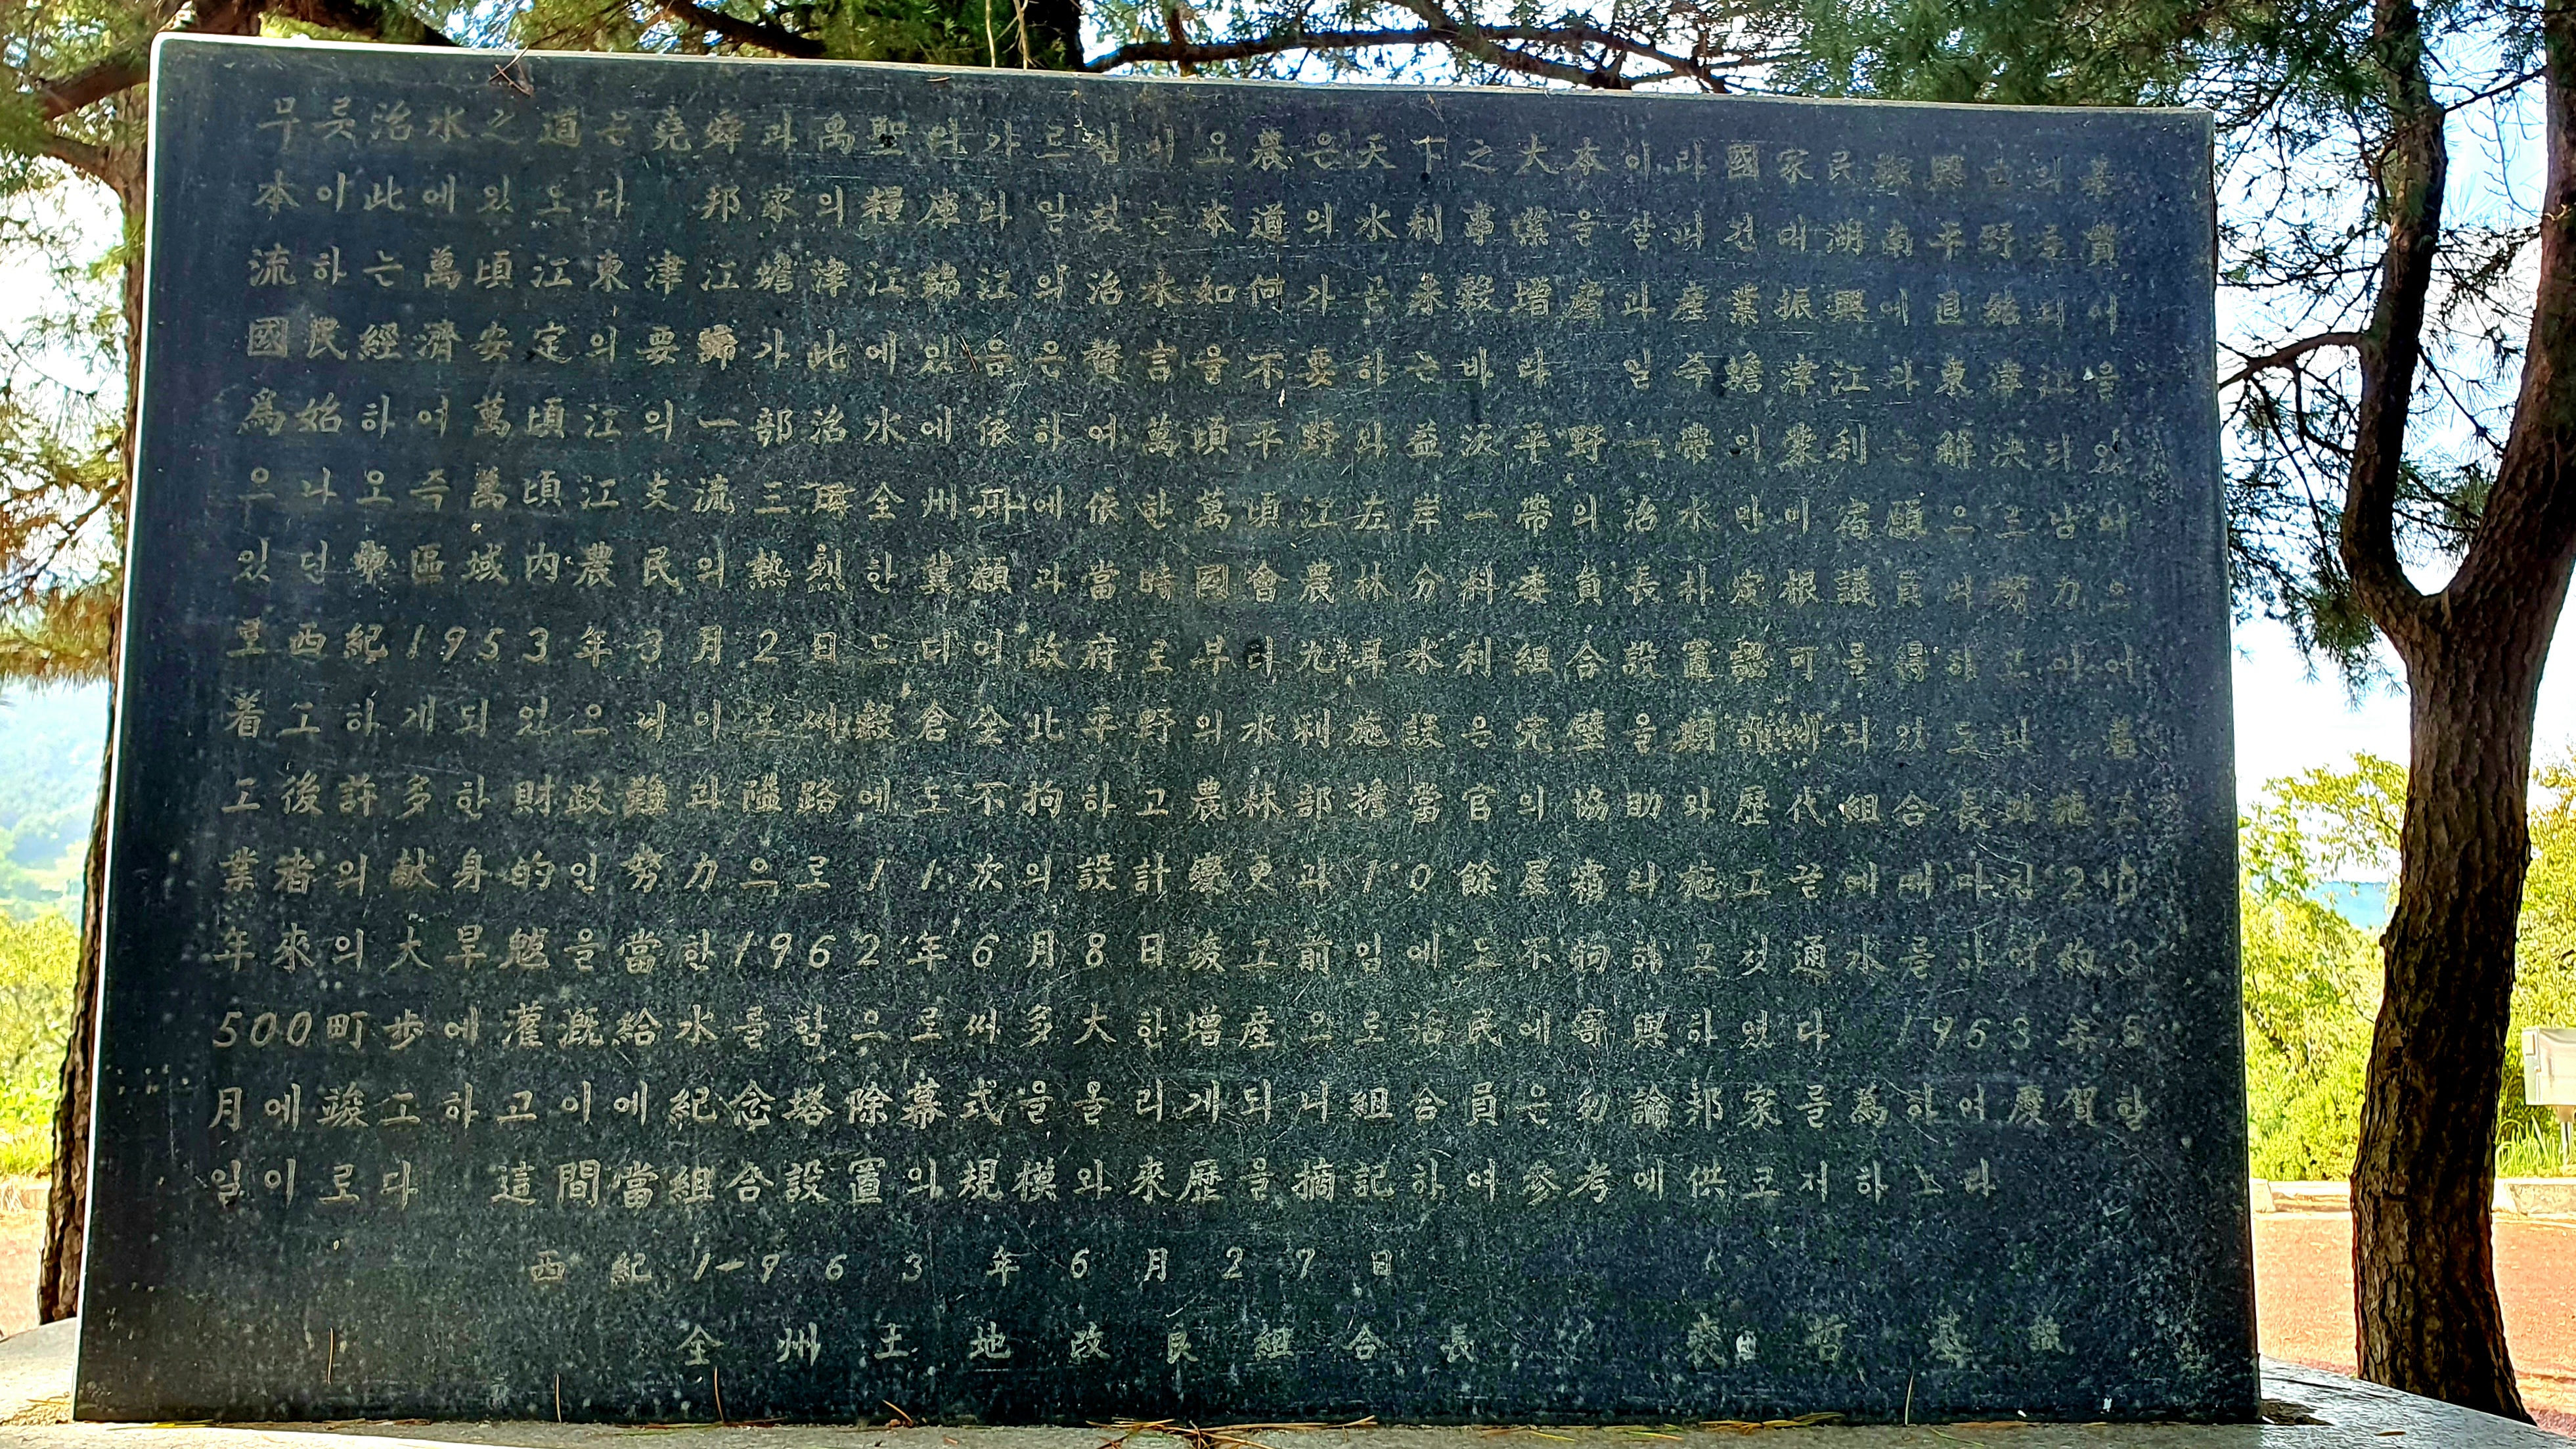 무릇治水之道는堯舜과禹聖의가르침이요農은天下之大本이라國家民族興亡의基
本이此에있도다 邦家의糧庫라일컷는本道의水利事業을살펴건대湖南平野를貫
流하는萬頃江東津江蟾津江錦江의治水如何가곧米穀增産과産業振興에直結되어
國民經濟安定의要歸가此에있음은贅言을不要하는바라 일즉蟾津江과東津江을
爲始하여萬頃江의一部治水에依하여萬頃平野와益沃平野一帶의蒙利는解決되었
으나오즉萬頃江支流三 全州 에依한萬頃江左岸一帶의治水만이宿願으로남아
있던 區域內農民의熱烈한冀願과當時國會農林分科委員長朴定根議員의努力으
로西紀1953年3月2日드디어政府로부터九耳水利組合設置認可를得하고이어
着工하게되었으며이로써穀倉全北平野의水利施設은完璧을 되었도다 着
工後許多한財政難과隘路에도不拘하고農林部擔當官의協助와歷代組合長과施工
業者의献身的인努力으로11次의設計變更과10餘星霜의施工끝에때마침
年來의大旱魃을當한1962年6月8日竣工前임에도不拘하고첫通水를하여約3
500町步에灌漑給水를함으로써多大한增産으로活民에寄與하였다 1963年6
月에竣工하고이에紀念塔除幕式을올리게되니組合員은勿論邦家를爲하여慶賀할
일이로다 這間當組合設置의規模와來歷을摘記하여參考에供코저하노라
西紀1963年6月27日
全州土地改良組合長 哲